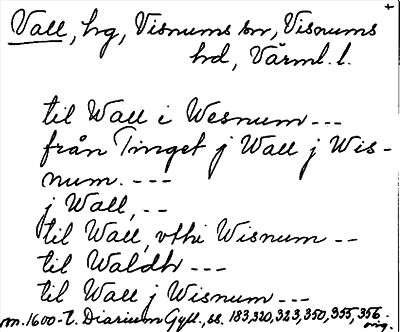 Vall, hg, Visnums sn, Visnums
hd, Värml. l.
til Wall i Wesnum ---
från Tinget j Wall j Wis-
num. ---
j Wall, --
til Wall, vthi Wisnum --
til Waldh ---
til Wall j Wisnum ---
m. 1600-t. Diarium Gyll., ss. 183, 320, 323, 350, 355, 356. orig.